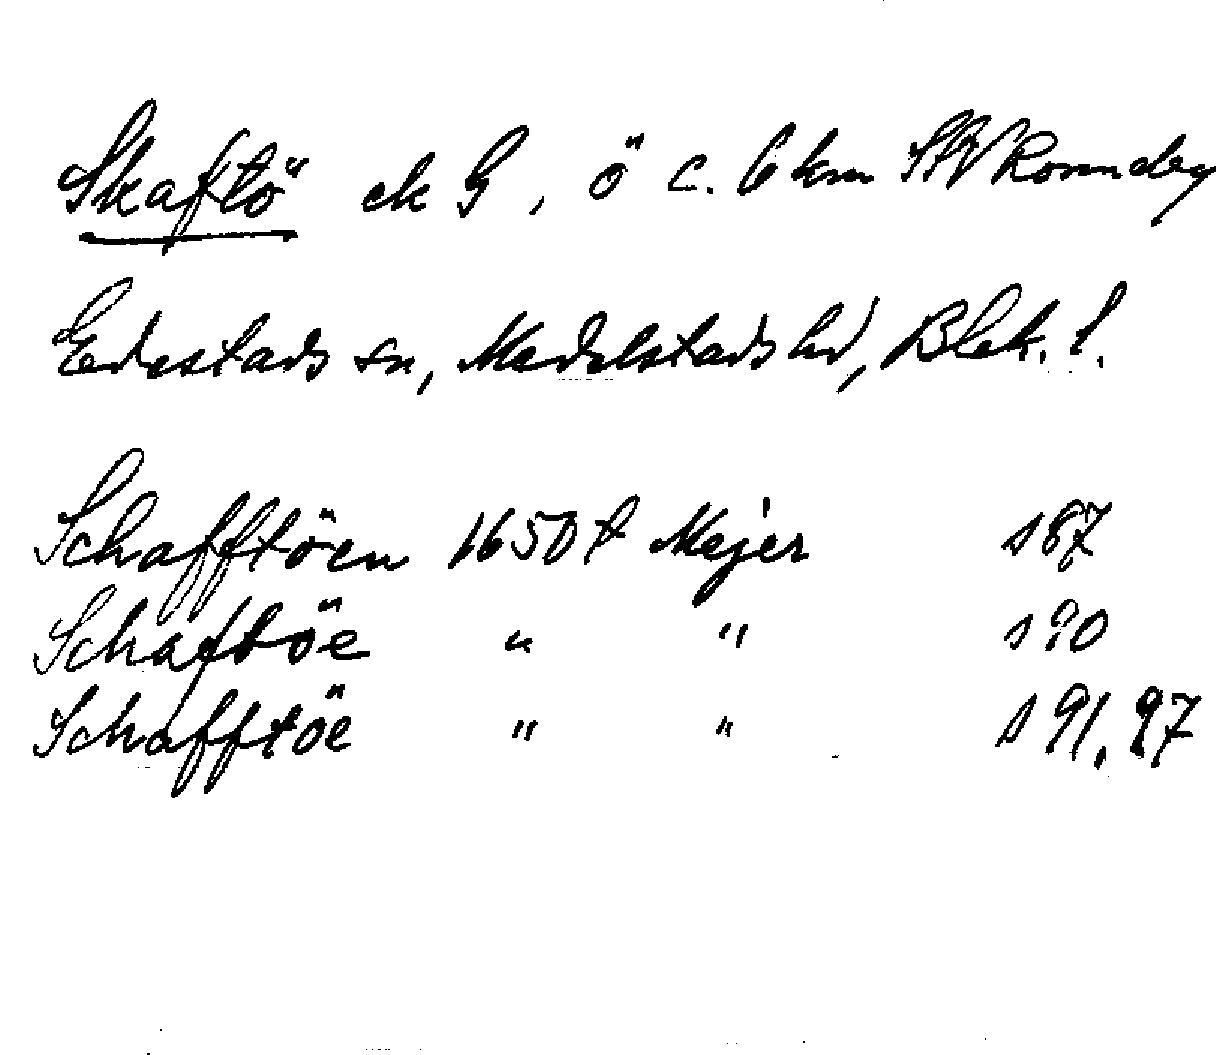 Skaftö ek G, ö c. 6 km SV Ronneby
Edestads sn, Medelstads hd, Blek. l.
Schafftöen 1650 t Mejer s 87
Schaftöe " " s 90
Schafftöe " " s 91, 97